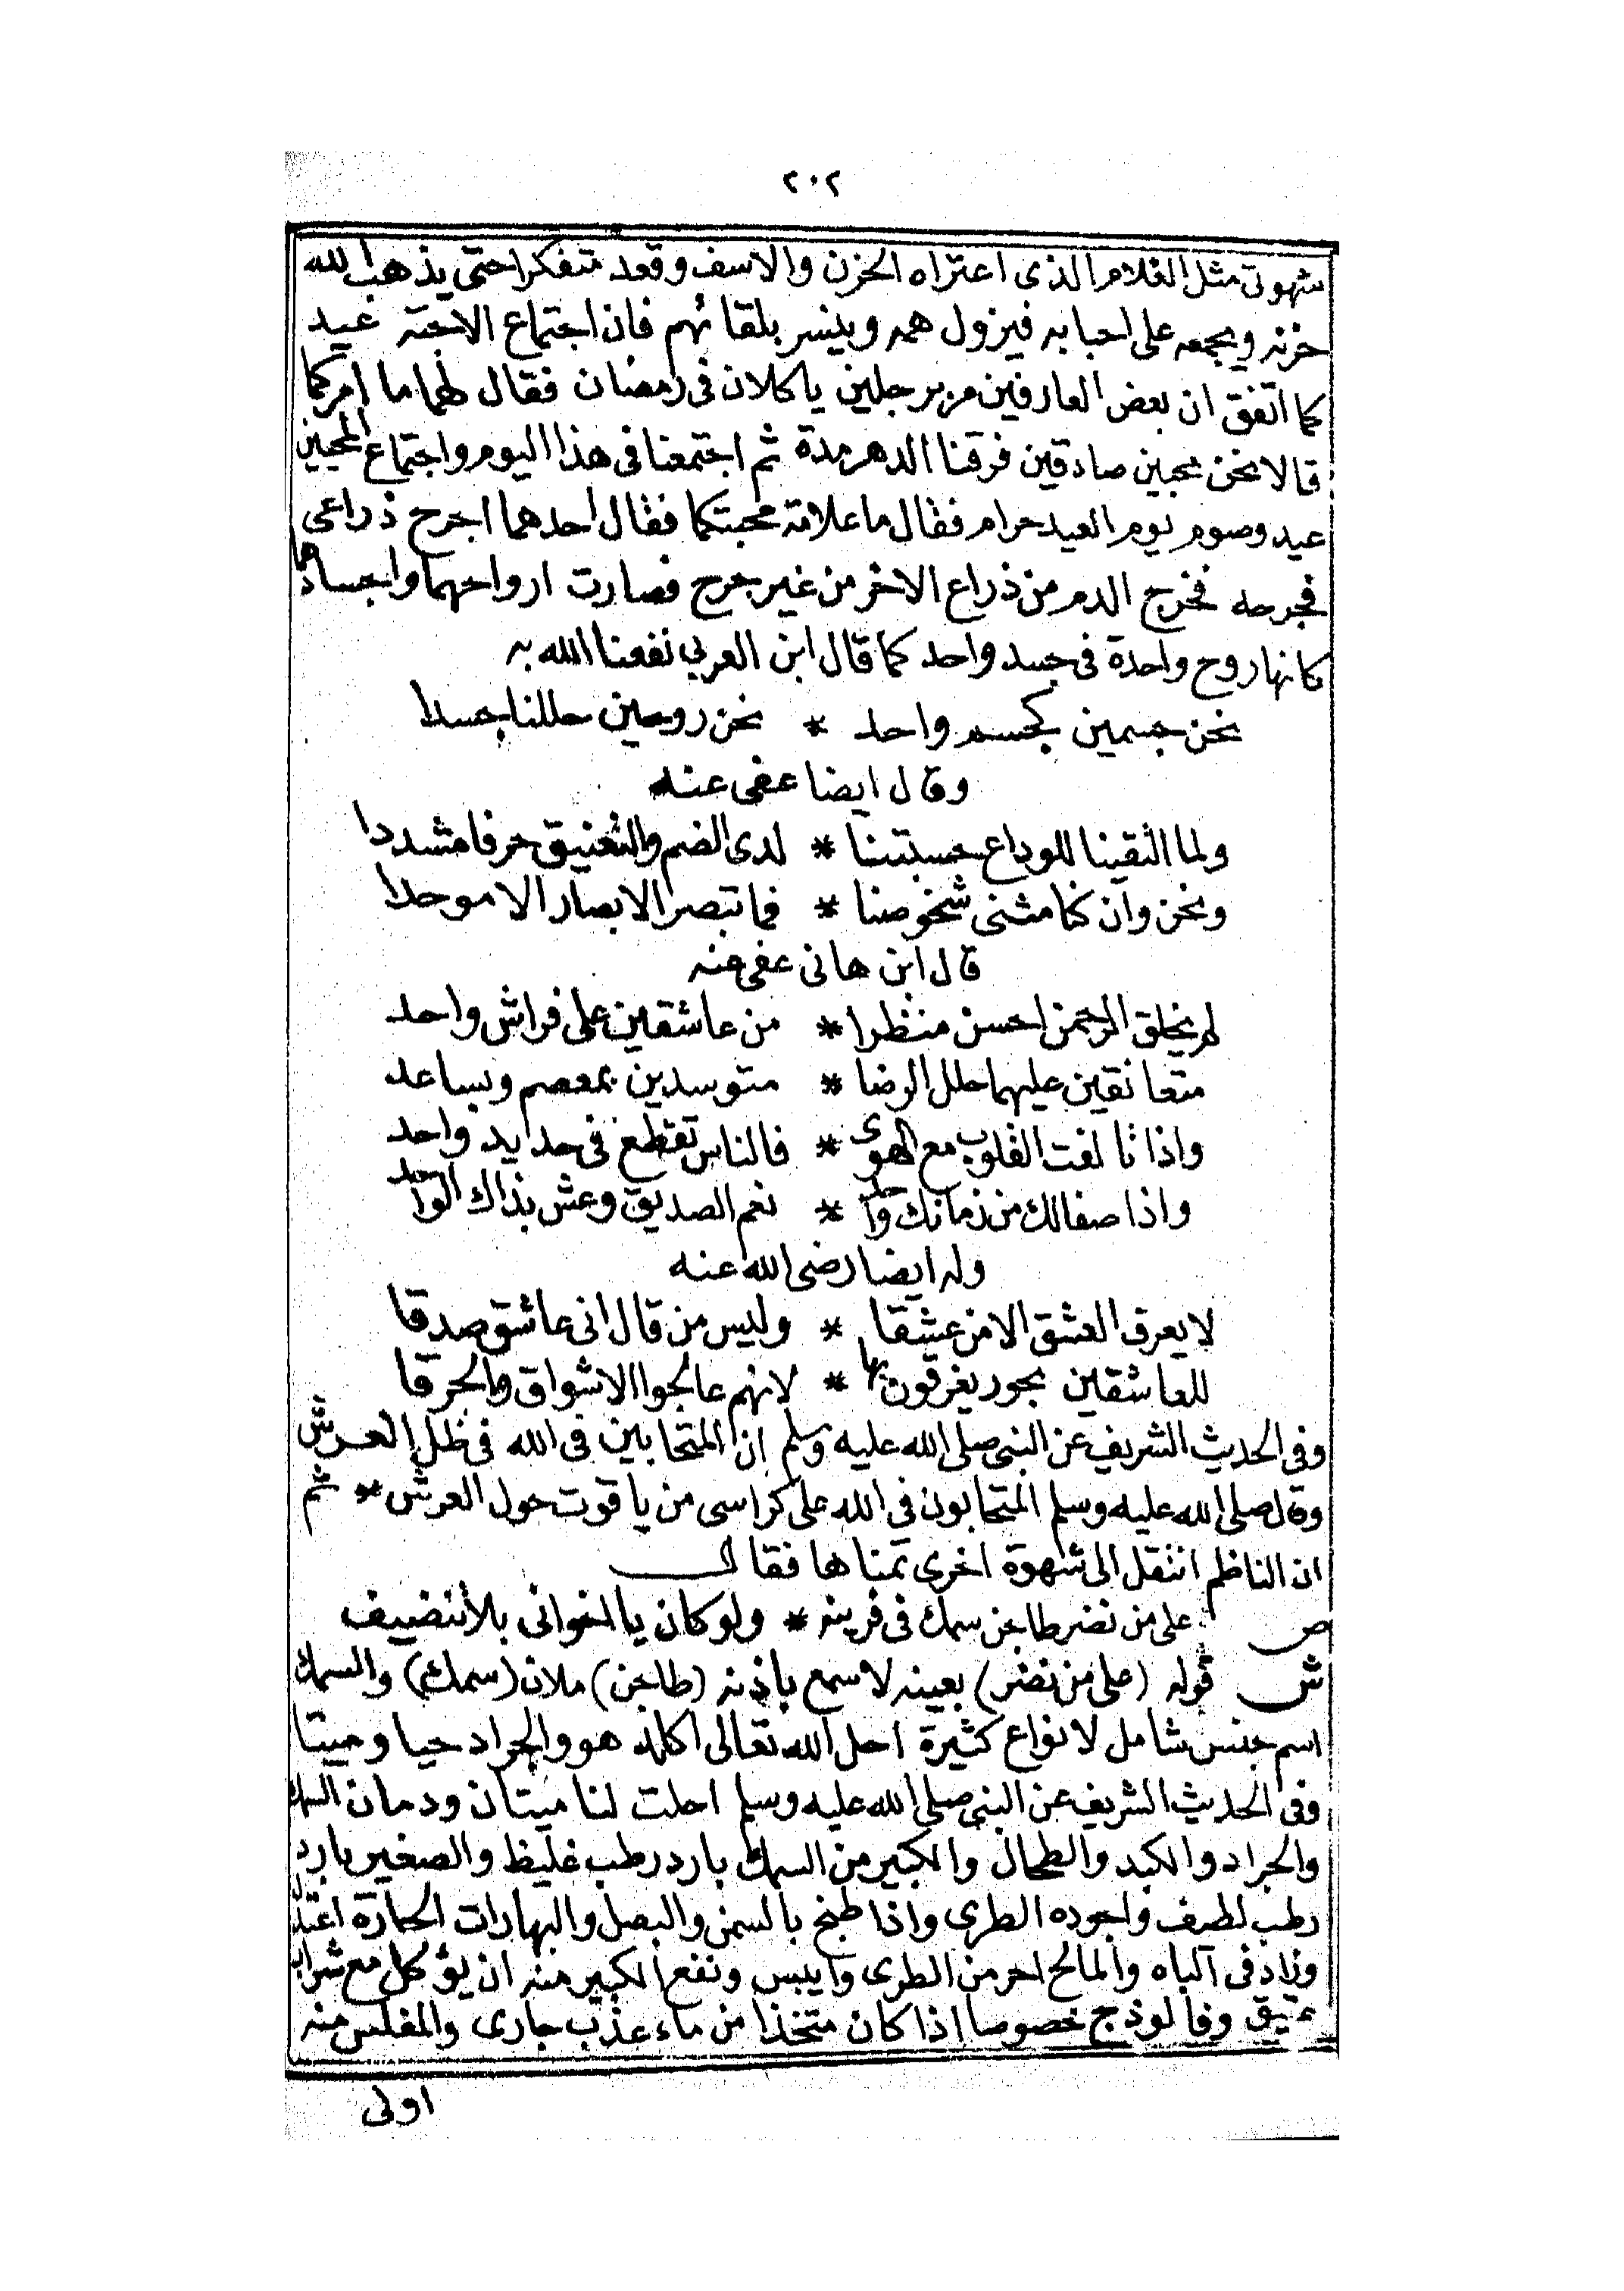 ٢٠٢
شهوتى مثل الغلام الذى اعتراه الحزن والاسف وقعد متفكرا حتى يذهب الله
حزنه ويجمعه على احبابه فيزول همه وينسر بلقائهم فان اجتماع الاحبة عيد
كما اتفق ان بعض العارفين مر برجلين ياكلان فى رمضان فقال لهما ما امركما
قالا نحن محبين صادقين فرقنا الدهر مدة ثم اجتمعنا فى هذا اليوم واجتماع المحبين
عيد وصوم يوم العيد حرام فقال ما علامة محبتكما فقال احدهما اجرح ذراعى
فجرحه فخرج الدم من ذراع الاخر من غير جرح فصارت ارواحهما واجسادهما
كانها روح واحدة فى جسد واحد كما قال ابن العربى نفعنا الله به
نحن جسمين كجسم واحد * نحن روحين حللنا جسدا
وقال ايضا عفى عنه
ولما التقينا للوداع حسبتنا * لدى الضم والتعنيق حرفا مشددا
ونحن وان كنا مثنى شخوصنا * فما تبصر الابصار الا موحدا
قال ابن هانى عفى عنه
لم يخلق الرحمن احسن منظرا * من عاشقين على فراش واحد
متعانقين عليهما حلل الرضا * متوسدين بمعصم وبساعد
واذا تالفت القلوب مع الهوى * فالناس تقطع فى حديد واحد
واذا صفالك من زمانك واحد * نعم الصديق وعش بذاك الواحد
وله ايضا رضى الله عنه
لا يعرف العشق الا من عشقا * وليس من قال انى عاشق صدقا
للعاشقين بحور يغرقون بها * لانهم عالجوا الاشواق والحرقا
وفى الحديث الشريف عن النبى صلى الله عليه وسلم ان المتحابين فى الله فى ظل العرش
وقال صلى الله عليه وسلم المتحابون فى الله على كراسى من ياقوت حول العرش * ثم
ان الناظم انتقل الى شهوة اخرى تمناها فقال
ص على من نضر طاجن سمك فى فرينه * ولو كان يا اخوانى بلا تنضيف
ش قوله (على من نضر) بعينه لا سمع باذنه (طاجن) ملان (سمك) والسمك
اسم جنس شامل لانواع كثيرة احل الله تعالى اكله هو والجراد حيا وميتا
وفى الحديث الشريف عن النبى صلى الله عليه وسلم احلت لنا ميتان ودمان السمك
والجراد والكبد والطحال والكبير من السمك بارد رطب غليظ والصغير بارد
رطب لطيف واجوده الطرى واذا طبخ بالسمن والبصل والبهارات الحارة اعتدل
وزاد فى الباه والمالح احر من الطرى وايبس ونفع الكبير منه ان يؤكل مع شراب
عتيق وفالوذج خصوصا اذا كان متخذا من ماء عذب جارى والمفلس منه
اولى